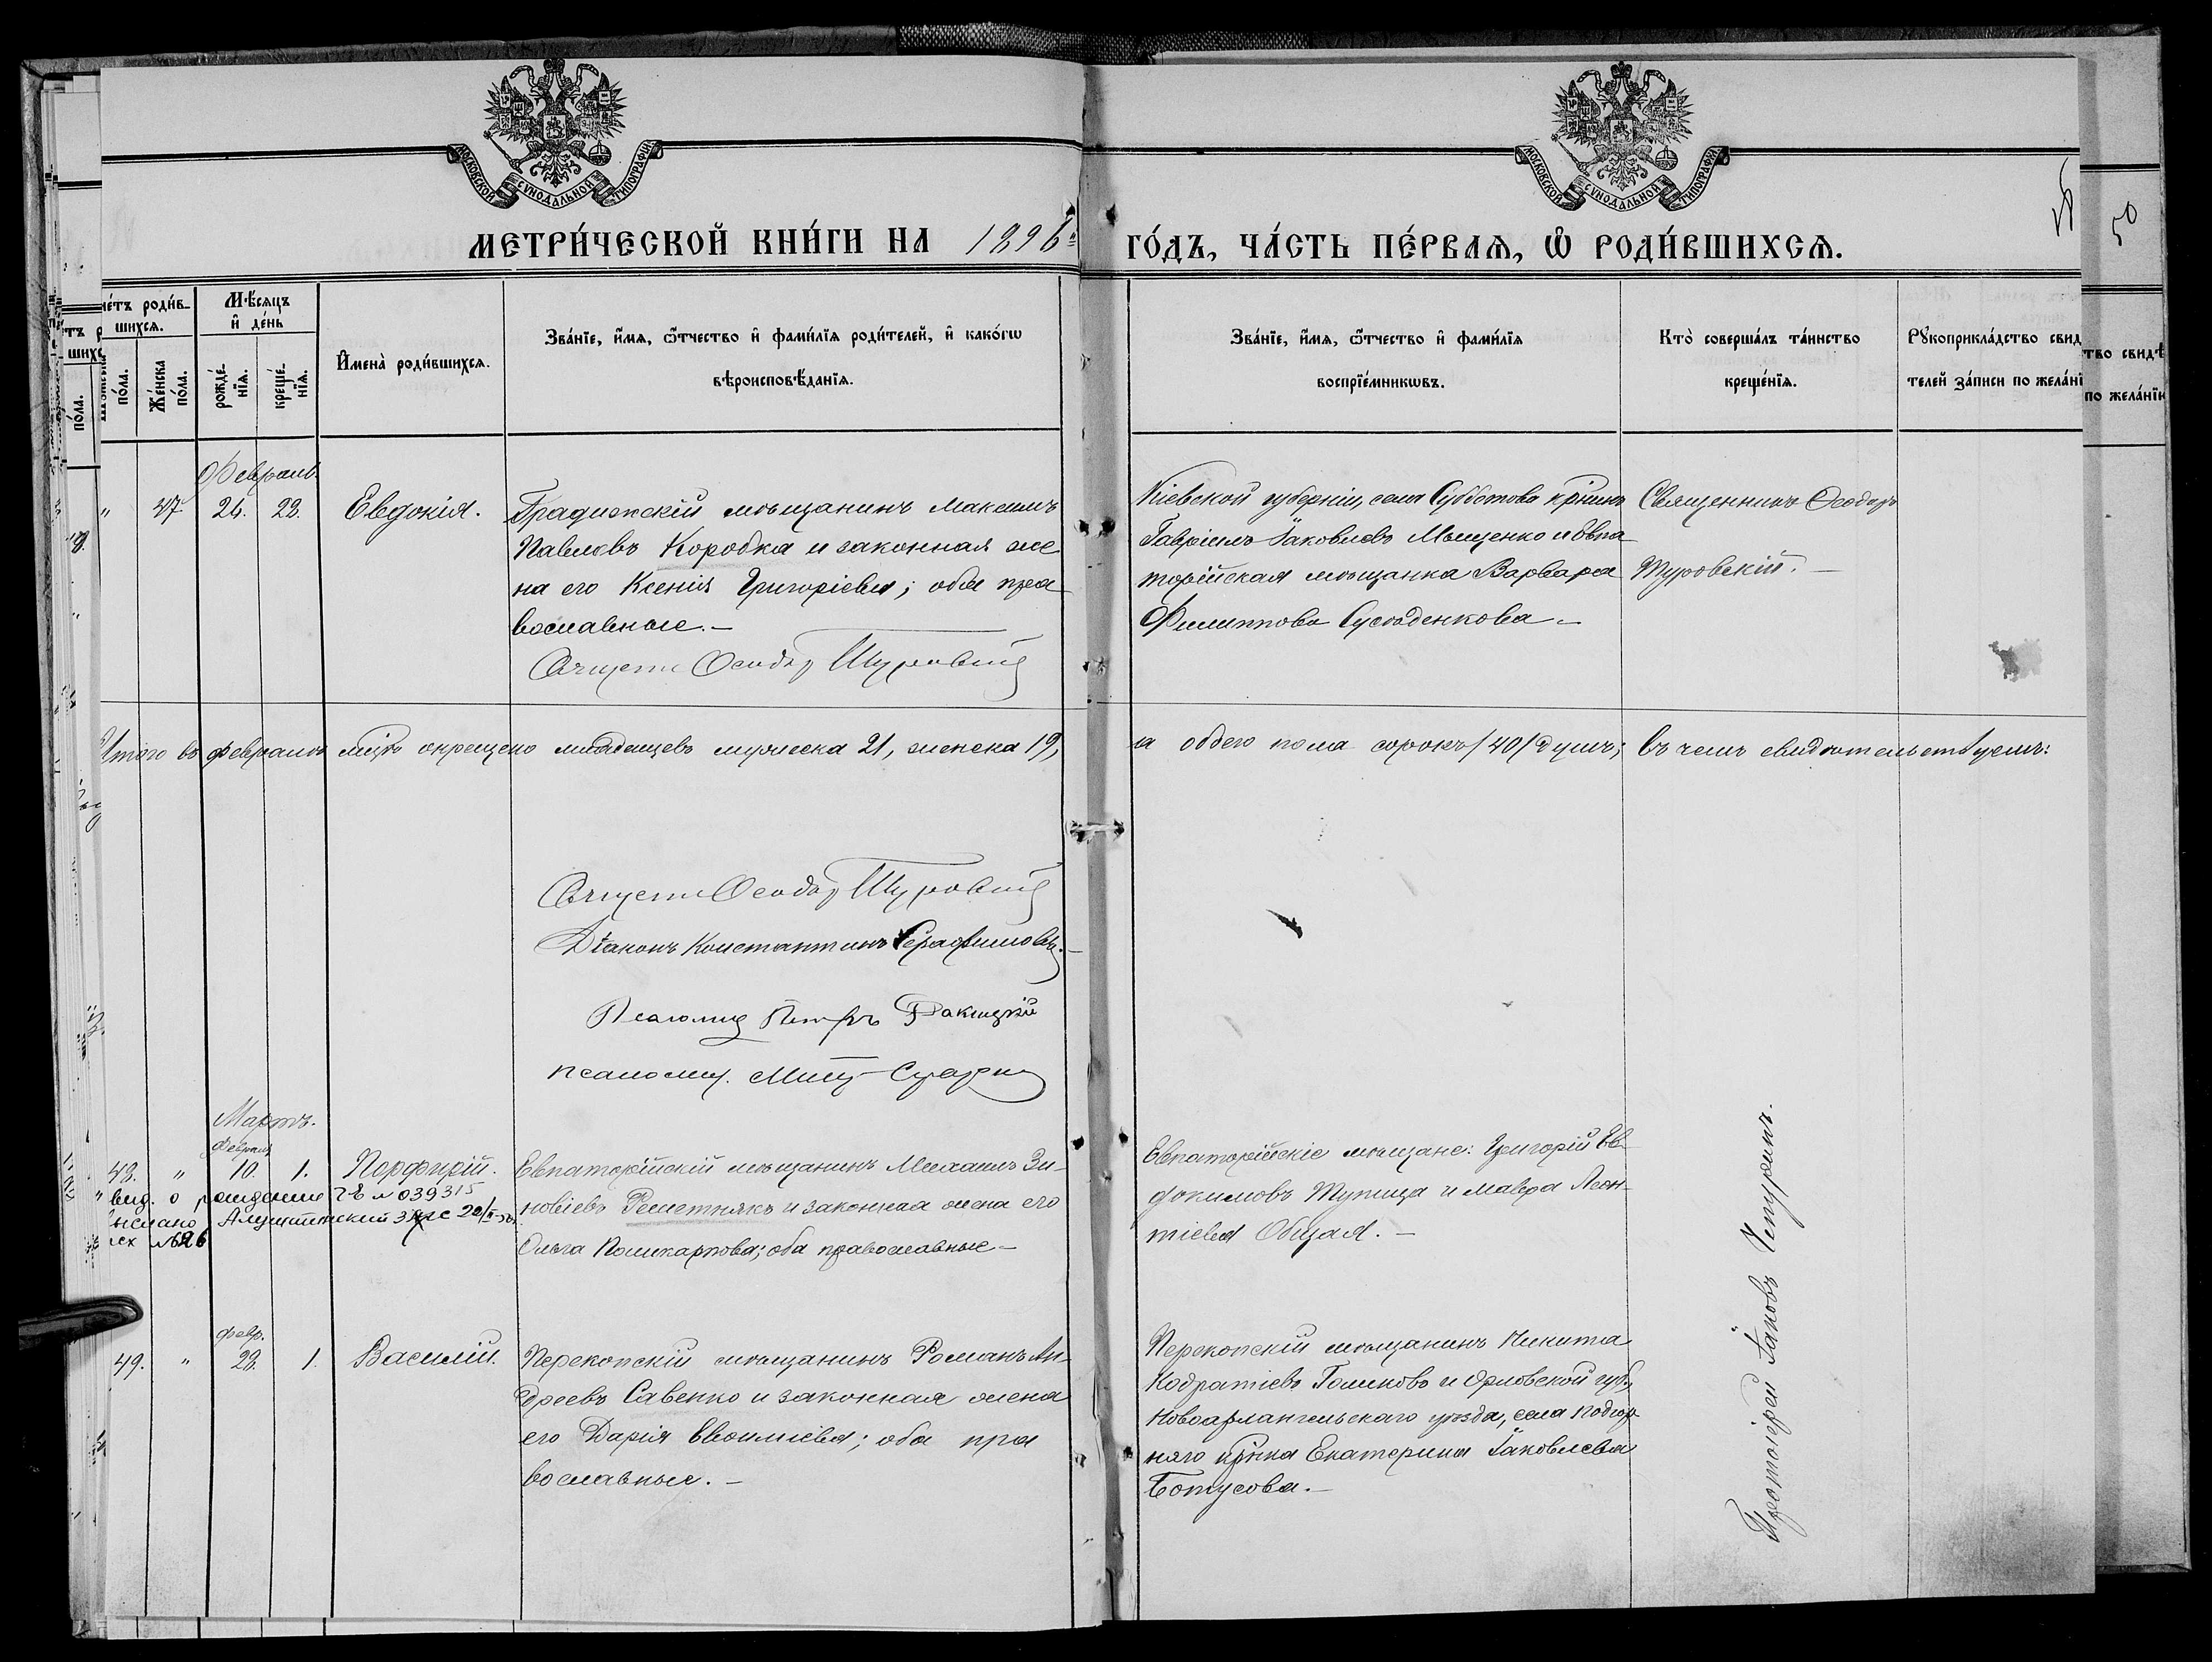 МОСКОВСКОЙ СѴНОДАЛЬНОЙ ТИПОГРАФІИ
МОСКОВСКОЙ СѴНОДАЛЬНОЙ ТИПОГРАФІИ
МЕТРИ́ЧЕСКОЙ КНИ́ГИ НА 1896
ГО́ДЪ, ЧА́СТЬ ПЕ́РВАѦ, Ѽ РОДИ́ВШИХСѦ.
50
родив-
шихсѧ.
пола.
Же́нска
по́ла.
Мѣ́сѧцъ
и҆ де́нь
рожде́-
нїѧ.
креще́-
нїѧ.
И҆мена̀ роди́вшихсѧ.
Зва́нїе, и҆́мѧ, ѻ҆́тчество и҆ фами́лїѧ роди́телей, и҆ како́гѡ
вѣроисповѣ́данїѧ.
Зва́нїе, и҆́мѧ, ѻ҆́тчество и҆ фами́лїѧ
воспрїе́мникѡвъ.
Кто̀ соверша́лъ та́инство
креще́нїѧ.
Рꙋкоприкла́дство свид
телей за́писи по жела́нї
Февраль.
" 47. 24. 28. Евдокія.
Градижскій мѣщанинъ Максимъ
Павловъ Коробка и законная же
на его Ксенія Григоріева; оба пра
вославные.–
Священ Ѳеодор Туровскій
Кіевской губерніи, села Субботова кр҃нинъ
Гавріилъ Іаковлевъ Мищенко и Евпа
торійская мѣщанка Варвара
Филиппова
Священникъ Ѳеодоръ
Туровскій.–
Итого въ февралѣ мц҃ѣ окрещено младенцевъ мужеска 21, женска 19,
а обоего пола сорокъ /40/ душъ; въ чемъ свидѣтельствуемъ:
Священ Ѳеодор Туровскій
Діаконъ Константинъ Серафимовъ.–
Псаломщ Петръ Ракицкій
Псаломщ.
Мартъ.
Февраль
48. " 10. 1. Порфирій.
вид. о рождении № 039315
выслано Алуштинский загс
исх №
Евпаторійскій мѣщанинъ Михаилъ Зи-
новіевъ Решетнякъ и законная жена его
Ольга Поликарпова; оба православные–
Евпаторійскіе мѣщане: Григорій Ев-
докимовъ Тупица и Мавра Леон-
тіева Общая.–
февр.
49. " 28. 1. Василій.
Перекопскій мѣщанинъ Романъ Ан-
дреевъ Савенко и законная жена
его Дарія Евѳиміева; оба пра
вославные.–
Перекопскій мѣщанинъ Никита
Кодратіевъ Голиковъ и Орловской губ.,
Новоархангельскаго уѣзда, села Подгор-
няго кр҃нка Екатерина Іаковлева
Ботусова.–
Протоіерей Іаковъ Чепуринъ.